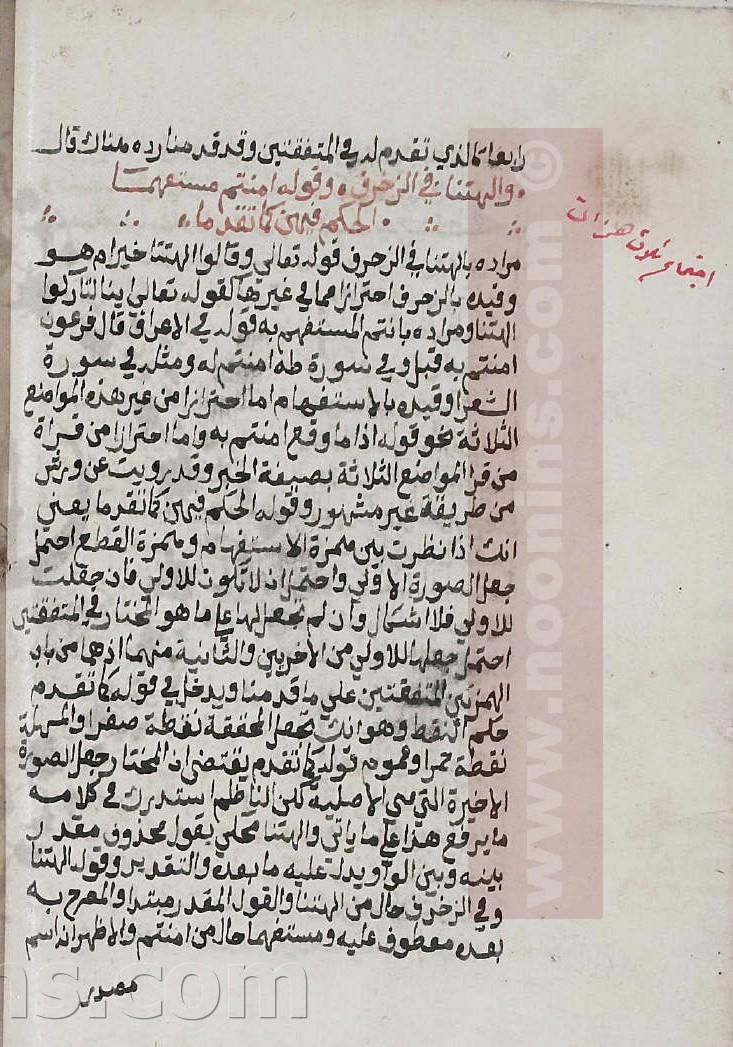 رابعا كالذي تقدم له في المتفقتين وقد قدمنا رده هناك قال
والهتنا في الزخرف وقوله امنتم مستفهما
الحكم فيهن كما تقدما
اجتماع ثلاث همزات
مراده بالهتنا في الزخرف قوله تعالى وقالوا االهتنا خير ام هو
وقيده بالزخرف احترازا مما في غيرها كقوله تعالى اينا لتاركوا
الهتنا ومراده بانتم المستفهم به قوله في الاعراف قال فرعون
امنتم به قبل وفي سورة طه امنتم له ومثله في سورة
الشعرا وقيده بالاستفهام اما احترازا من غير هذه المواضع
الثلاثة نحو قوله اذا ما وقع امنتم به واما احترازا من قراة
من قرا المواضع الثلاثة بصيغة الخبر وقد رويت عن ورش
من طريقة غير مشهور وقوله الحكم فيهن كما تقدما يعني
انك اذا نظرت بين همزة الاستفهام وهمزة القطع احتمل
جعل الصورة الاولى واحتمل ان لا تكون للاولى فان جعلت
للاولى فلا اشكال وان لم تجعل لها على ما هو المختار في المتفقتين
احتمل جعلها للاولى من الاخريين والثانية منهما اذ هما من باب
الهمزتين المتفقتين على ما قدمنا ويدخل في قوله كما تقدم
حكم النقط وهو انك تجعل المحققة نقطة صفرا والمسهلة
نقطة حمرا وعموم قوله كما تقدم يقتضي ان المختار جعل الصورة
الاخيرة التي هي الاصلية لكن الناظم استدرك في كلامه
ما يرفع هذا على ما ياتي والهتنا محكي بقول محذوف مقدر
بينه وبين الواو يدل عليه ما بعده والتقدير وقوله الهتنا
وفي الزخرف حال من الهتنا والقول المقدر مبتدا والمصرح به
بعده معطوف عليه ومستفهما حال من امنتم والاظهر انه اسم
مصدر
www.noonins.com ©
ns.com